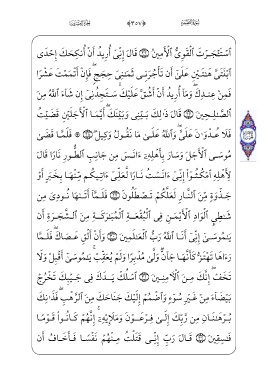 اَسْتَـْٔجَرْتَ اَلْقَوِىُّ اُلْأَمِينُ قَالَ إِنِّىَ أُرِيدُ أَنْ أُنكِحَكَ إِحْدَى
اَبْنَتَىَّ هَـٰتَيْنِ عَلَىٰٓ أَن تَأْجُرَنِى ثَمَـٰنِىَ حِجَجٍ فَإِنْ أَتْمَمْتَ عَشْرًا
فَمِنْ عِندِكَ وَمَآ أُرِيدُ أَنْ أَشُقَّ عَلَيْكَ سَتَجِدُنِىَ إِن شَآءَ اَللَّهُ مِنَ
اَلصَّـٰلِحِينَ قَالَ ذَٰلِكَ بَيْنِى وَبَيْنَكَ أَيَّمَا اَلْأَجَلَيْنِ قَضَيْتُ
فَلَا عُدْوَٰنَ عَلَىَّ وَاللَّهُ عَلَىٰ مَا نَقُولُ وَكِيلٌ ۞ فَلَمَّا قَضَىٰ
مُوسَى اَلْأَجَلَ وَسَارَ بِأَهْلِهِۦٓ ءَانَسَ مِن جَانِبِ اِلطُّورِ نَارًا قَالَ
لِأَهْلِهِ اِمْكُثُوٓا۟ إِنِّىَ ءَانَسْتُ نَارًا لَّعَلِّىَ ءَاتِيكُم مِّنْهَا بِخَبَرٍ أَوْ
جِذْوَةٍ مِّنَ اَلنَّارِ لَعَلَّكُمْ تَصْطَلُونَ فَلَمَّآ أَتَىٰهَا نُودِىَ مِن
شَـٰطِئِ اِلْوَادِ اِلْأَيْمَنِ فِى اِلْبُقْعَةِ اِلْمُبَـٰرَكَةِ مِنَ اَلشَّجَرَةِ أَن
يَـٰمُوسَىٰٓ إِنِّىَ أَنَا اَللَّهُ رَبُّ اُلْعَـٰلَمِينَ وَأَنْ أَلْقِ عَصَاكَ فَلَمَّا
رَءَاهَا تَهْتَزُّ كَأَنَّهَا جَآنٌّ وَلَّىٰ مُدْبِرًا وَلَمْ يُعَقِّبْ يَـٰمُوسَىٰٓ أَقْبِلْ وَلَا
تَخَفْ إِنَّكَ مِنَ اَلْـَٔامِنِينَ اَسْلُكْ يَدَكَ فِى جَيْبِكَ تَخْرُجْ
بَيْضَآءَ مِنْ غَيْرِ سُوٓءٍ وَاضْمُمْ إِلَيْكَ جَنَاحَكَ مِنَ اَلرَّهَبِ فَذَٰنِكَ
بُرْهَـٰنَـٰنِ مِن رَّبِّكَ إِلَىٰ فِرْعَوْنَ وَمَلَإِي۟هِۦٓ إِنَّهُمْ كَانُوا۟ قَوْمًا
فَـٰسِقِينَ قَالَ رَبِّ إِنِّى قَتَلْتُ مِنْهُمْ نَفْسًا فَأَخَافُ أَن